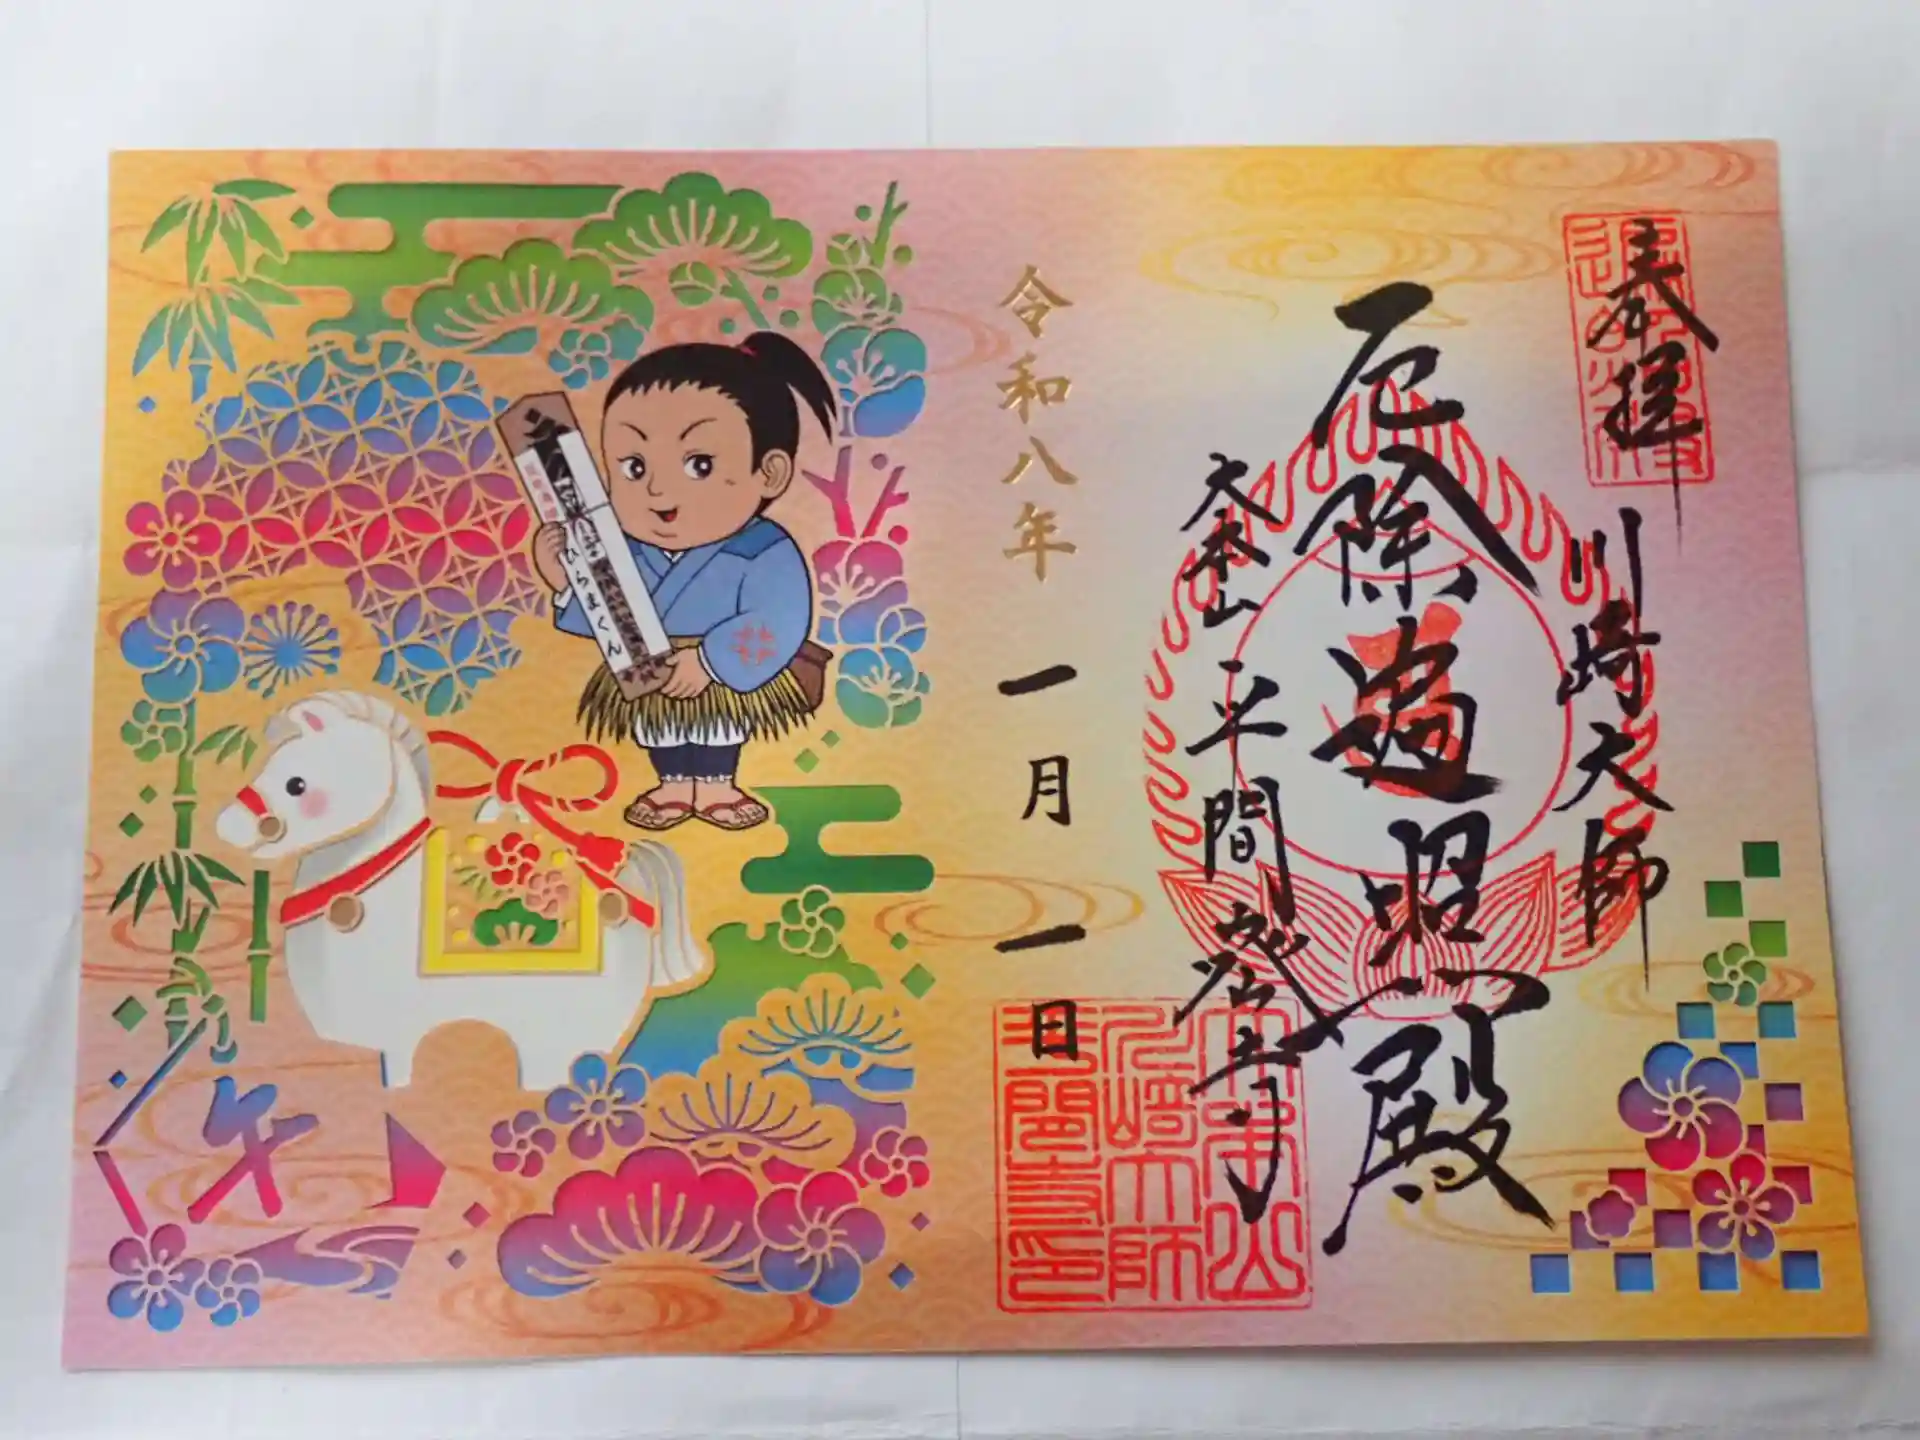 奉拝
川崎大師
厄除遍照殿
大本山
平間寺
令和八年
一月
一日
ひらまくん
午
大本山
川崎大師
平間寺印